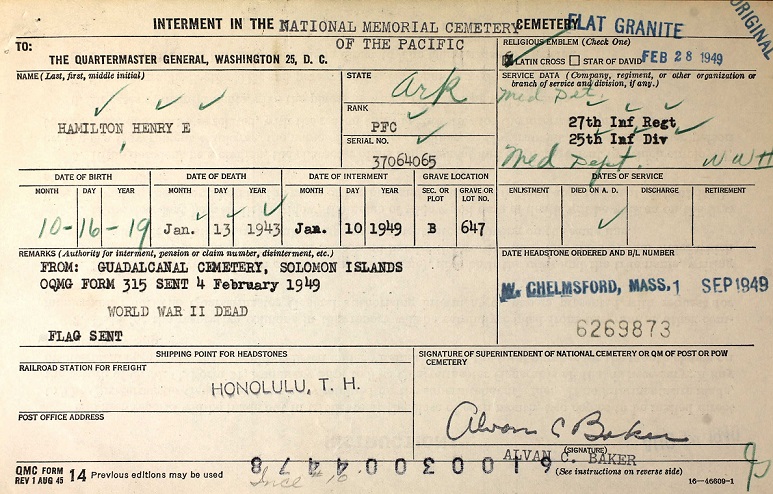 INTERMENT IN THE NATIONAL MEMORIAL CEMETERY CEMETERY
OF THE PACIFIC
FLAT GRANITE
ORIGINAL
TO:
THE QUARTERMASTER GENERAL, WASHINGTON 25, D. C.
RELIGIOUS EMBLEM (Check One)
LATIN CROSS STAR OF DAVID
FEB 28 1949
NAME (Last, first, middle initial)
HAMILTON HENRY E
STATE
Ark
RANK
PFC
SERIAL NO.
37064065
SERVICE DATA (Company, regiment, or other organization or branch of service and division, if any.)
Med Det.
27th Inf Regt
25th Inf Div
Med Dept. WWII
DATE OF BIRTH
MONTH DAY YEAR
10-16-19
DATE OF DEATH
MONTH DAY YEAR
Jan. 13 1943
DATE OF INTERMENT
MONTH DAY YEAR
Jan. 10 1949
GRAVE LOCATION
SEC. OR PLOT GRAVE OR LOT NO.
B 647
DATES OF SERVICE
ENLISTMENT DIED ON A. D. DISCHARGE RETIREMENT
REMARKS (Authority for interment, pension or claim number, disinterment, etc.)
FROM: GUADALCANAL CEMETERY, SOLOMON ISLANDS
OQMG FORM 315 SENT 4 February 1949
WORLD WAR II DEAD
FLAG SENT
DATE HEADSTONE ORDERED AND B/L NUMBER
W. CHELMSFORD, MASS. 1 SEP 1949
6269873
SHIPPING POINT FOR HEADSTONES
RAILROAD STATION FOR FREIGHT
HONOLULU, T. H.
POST OFFICE ADDRESS
SIGNATURE OF SUPERINTENDENT OF NATIONAL CEMETERY OR QM OF POST OR POW CEMETERY
Alvan C Baker
(SIGNATURE)
ALVAN C. BAKER
(See instructions on reverse side)
QMC FORM
REV 1 AUG 45 14 Previous editions may be used
16—46609-1